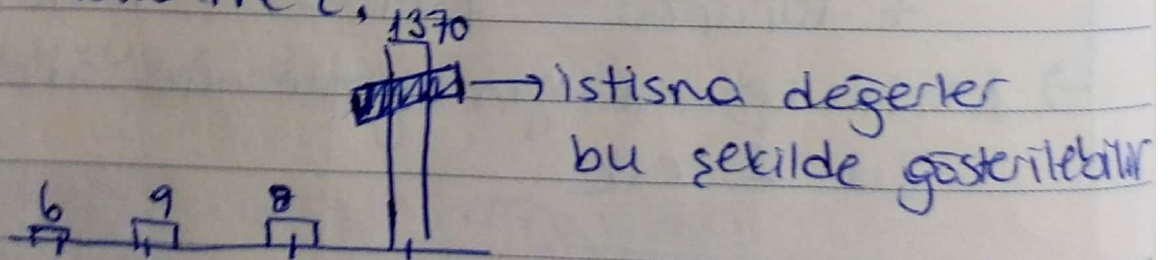 1370
→ istisna değerler
bu şekilde gösterilebilir
6 9 8